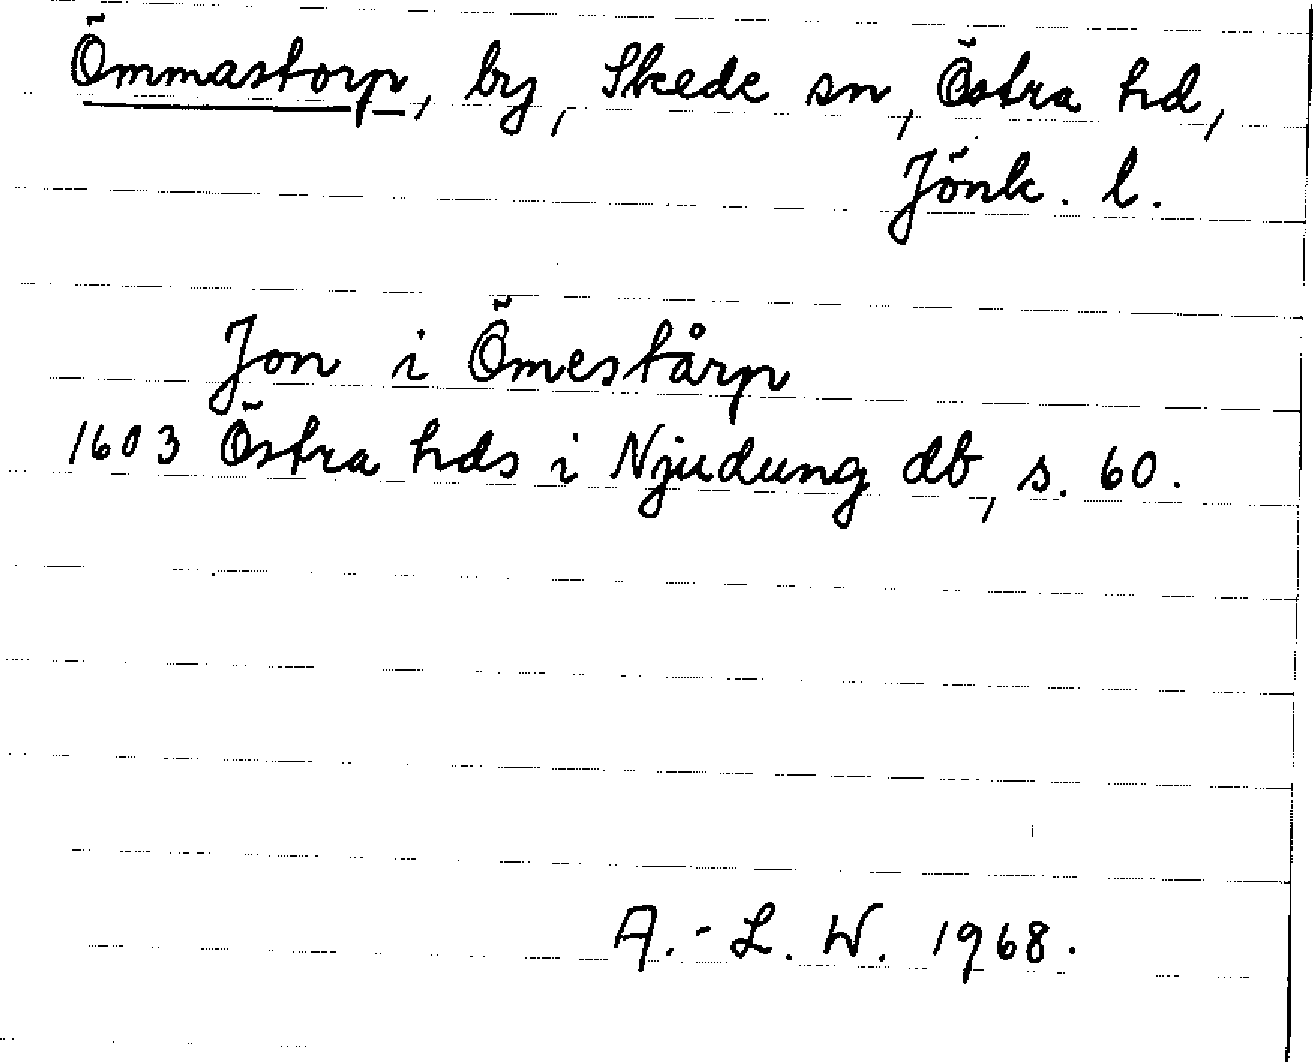 Ömmastorp, by, Skede sn, Östra hd,
Jönk. l.
Jon i Ömestårp
1603 Östra hds i Njudung db, s. 60.
A.-L. W. 1968.